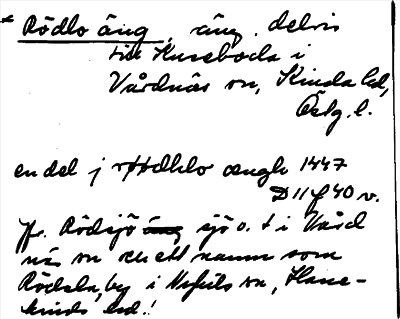 * Rödlo äng, äng, delvis
till Kuseboda i
Vårdnäs sn, Kinda hd,
Östg. l.
en del j rødhlo ængh 1447
D 11 f 40 v.
Jfr. Rödsjö sjö o. t i Vård
näs sn och ett namn som
Rödsla, by i sn, Hane-
kinds hd.!